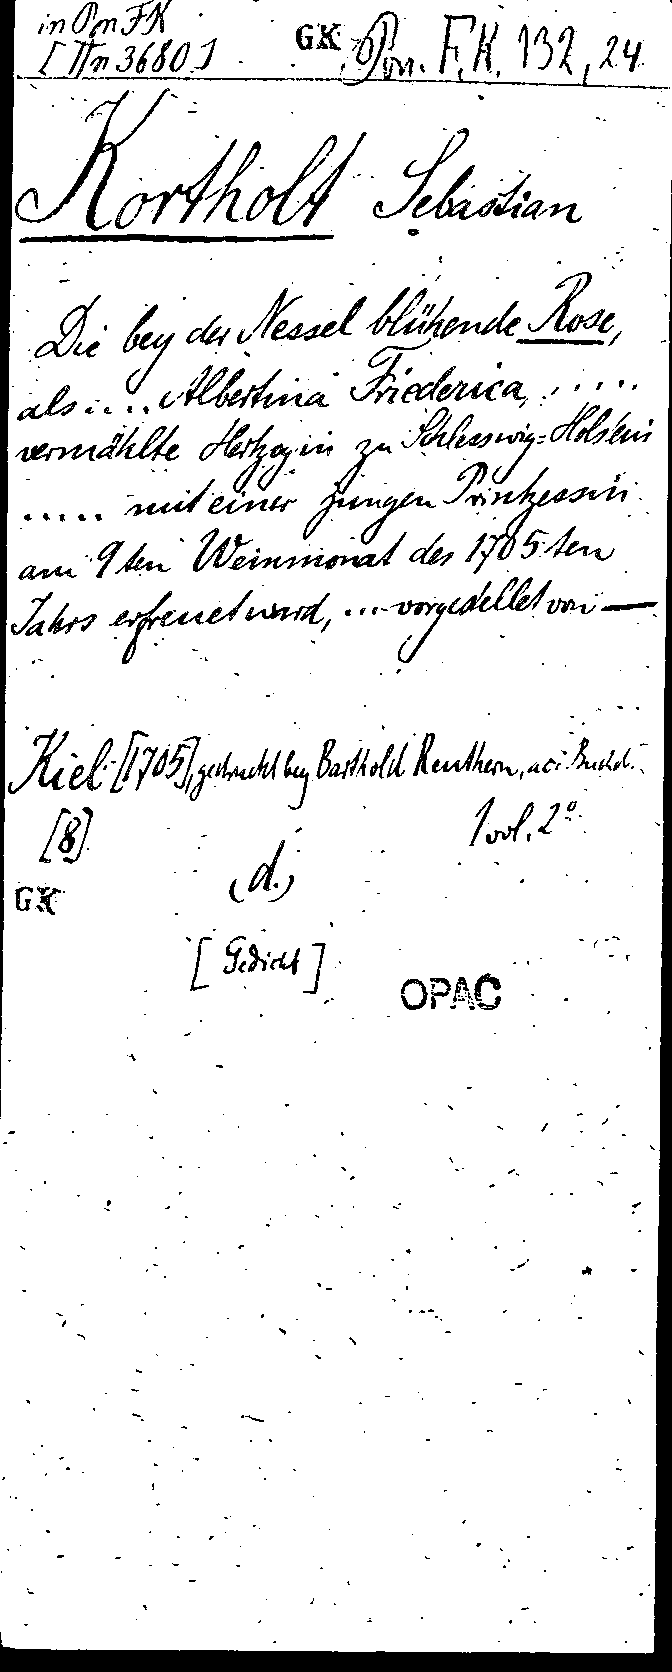 in Pon FK
GK Pon. F.K. 132, 24
[IIn 3680]
Kortholt Sebastian
Die bey der Nessel blühende Rose,
als .... Albertina Friederica, .....
vermählte Hertzogin zu Schlesswig=Holstein
..... mit einer jungen Printzessin
am 9ten Weinmonat des 1705ten
Jahrs erfreuet ward, ... vorgestellet von —
Kiel [1705], gedruckt bey Barthold Reuthern, aci. Buchd.
[8] 1 vol. 2°
(d.)
GK
[Gedicht]
OPAC